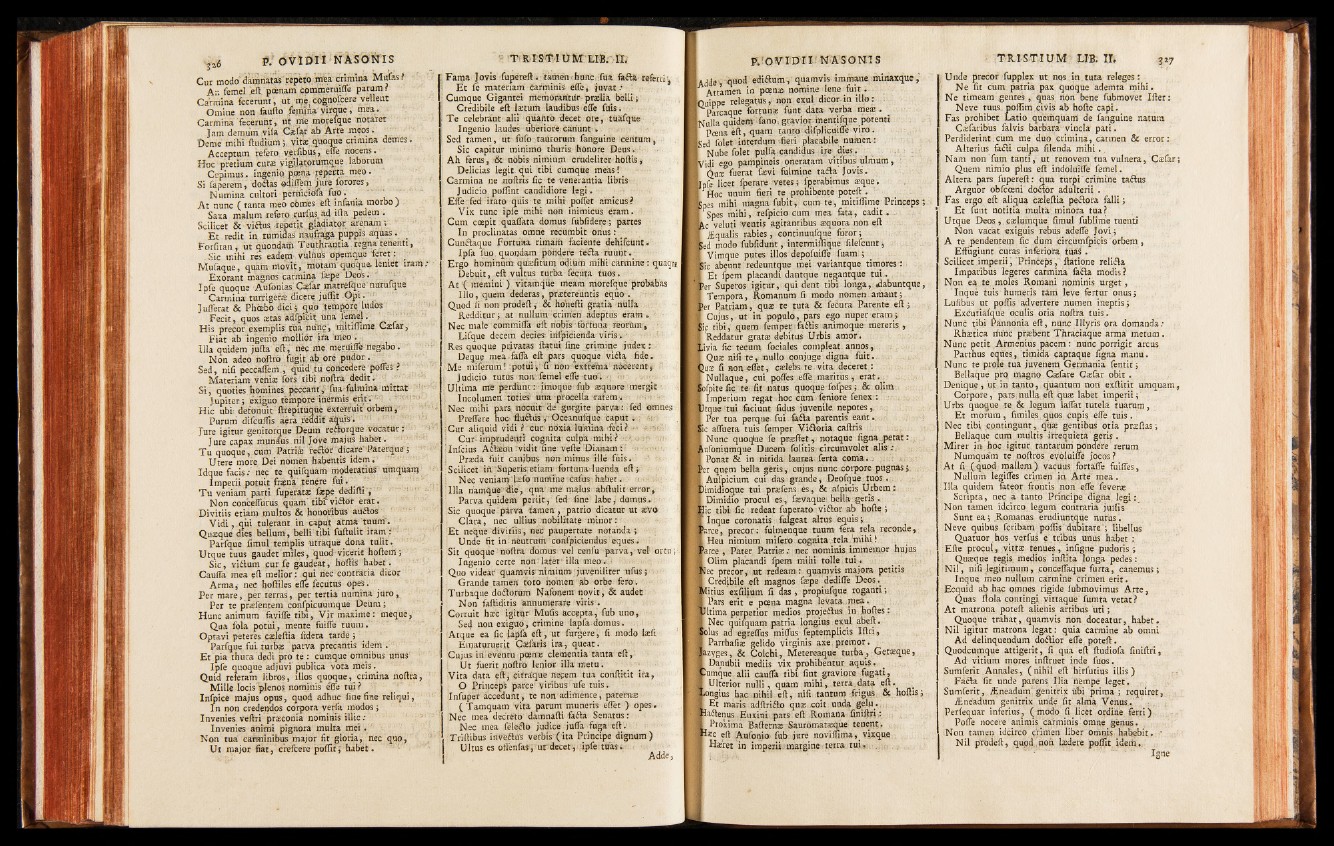 326 P. OVIDII NASONIS
Cur modo damnatas repeto mea crimina Musas?
An semel est pœnam commeruisse parum?
Carmina fecerunt, ut me cognoscere vellent
Omine non fausto femina virque, mea.
Carmina fecerunt, ut me moresque notaret
Jam demum visa Cæsar ab Arte meos.
Deme mihi studium; vitæ quoque crimina demes.
Acceptum refero versibus, esse nocens.
Hoc pretium curæ vigilatorumque laborum
Cepimus. ingenio pœna reperta meo.
Si saperem, doctas odissem jure sorores,
Numina cultori perniciosa suo.
At nunc (tanta meo comes est insania morbo)
Saxa malum refero rursus ad ista pedem.
Scilicet & victus repetit gladiator arenam;
Et redit in tumidas naufraga puppis aquas.
Forsitan, ut quondam Teuthrantia regna tenenti,
Sic mihi res eadem vulnus opemque feret:
Musaque, quam movit, motam quoque leniet iram:
Exorant magnos carmina sæpe Deos.
Ipse quoque Ausonias Cæsar matresque nurusque
Carmina turrigeræ dicere jussit Opi.
Jusserat & Phœbo dici; quo tempore ludos
Fecit, quos ætas adspicit una semel.
His precor exemplis tua nunc, mitissime Cæsar,
Fiat ab ingenio mollior ira meo.
Illa quidem justa est, nec me meruisse negabo.
Non adeo nostro fugit ab ore pudor.
Sed, nisi peccassem, quid tu concedere posses?
Materiam veniæ sors tibi nostra dedit.
Si, quoties homines peccant, sua fulmina mittat
Jupiter; exiguo tempore inermis erit.
Hic ubi detonuit strepituque exterruit orbem,
Purum discussis aera reddit aquis.
Jure igitur genitorque Deum rectorque vocatur:
Jure capax mundus nil Jove majus habet.
Tu quoque, cum Patriæ rector dicare Paterque;
Utere more Dei nomen habentis idem.
Idque facis: nec te quisquam moderatius umquam
Imperii potuit fræna tenere sui.
Tu veniam parti superatæ sæpe dedisti,
Non concessurus quam tibi victor erat.
Divitiis etiam multos & honoribus auctos
Vidi, qui tulerant in caput arma tuum.
Quæque dies bellum, belli tibi sustulit iram:
Parsque simul templis utraque dona tulit.
Utque tuus gaudet miles, quod vicerit hostem;
Sic, victum cur se gaudeat, hostis habet.
Causa mea est melior: qui nec contraria dicor
Arma, nec hostiles esse secutus opes.
Per mare, per terras, per tertia numina juro,
Per te præsentem conspicuumque Deum;
Hunc animum favisse tibi, Vir maxime: meque,
Qua sola potui, mente fuisse tuum.
Optavi peteres cælestia sidera tarde;
Parsque fui turbæ parva precantis idem.
Et pia thura dedi pro te: cumque omnibus unus
Ipse quoque adjuvi publica vota meis.
Quid referam libros, illos quoque, crimina nostra,
Mille locis plenos nominis esse tui?
Inspice majus opus, quod adhuc sine fine reliqui,
In non credendos corpora versa modos;
Invenies vestri præconia nominis illic:
Invenies animi pignora multa mei.
Non tua carminibus major fit gloria, nec quo,
Ut major fiat, crescere possit; habet.
TRISTIUM LIB. II.
Fama Jovis superest. tamen hunc sua facta referri,
Et se materiam carminis esse, juvat:
Cumque Gigantei memorantur prælia belli;
Credibile est lætum laudibus esse suis.
Te celebrant alii quanto decet ore, tuasque
Ingenio laudes uberiore canunt.
Sed tamen, ut fuso taurorum sanguine centum,
Sic capitur minimo thuris honore Deus.
Ah ferus, & nobis nimium crudeliter hostis,
Delicias legit qui tibi cumque meas!
Carmina ne nostris sic te venerantia libris
Judicio possint candidiore legi.
Esse sed irato quis te mihi posset amicus?
Vix tunc ipse mihi non inimicus eram.
Cum cœpit quassata domus subsidere; partes
In proclinatas omne recumbit onus:
Cunctaque Fortuna rimam faciente dehiscunt.
Ipsa suo quondam pondere tecta ruunt.
Ergo hominum quæsitum odium mihi carmine: quaque
Debuit, est vultus turba secuta tuos.
At (memini) vitamque meam moresque probabas
Illo, quem dederas, prætereuntis equo.
Quod si non prodest, & honesti gratia nulla
Redditur; at nullum crimen adeptus eram.
Nec male commissa est nobis fortuna reorum,
Lisque decem decies inspicienda viris.
Res quoque privatas statui sine crimine judex:
Deque mea fassa est pars quoque victa fide.
Me miserum! potui, si non extrema nocerent,
Judicio tutus non semel esse tuo.
Ultima me perdunt: imoque sub æquore mergit
Incolumen toties una procella ratem.
Nec mihi pars nocuit de gurgite parva: sed omnes
Pressere hoc fluctus, Oceanusque caput.
Cur aliquid vidi? cur noxia lumina feci?
Cur imprudenti cognita culpa mihi?
Inscius Actæon vidit sine veste Dianam:
Præda fuit canibus non minus ille suis.
Scilicet in Superis etiam fortuna luenda est;
Nec veniam læso numine casus habet.
Illa namque die, qua me malus abstulit error,
Parva quidem periit, sed sine labe, domus.
Sic quoque parva tamen, patrio dicatur ut ævo
Clara, nec ullius nobilitate minor:
Et neque divitiis, nec paupertate notanda;
Unde fit in neutrum conspiciendus eques.
Sit quoque nostra domus vel censu parva, vel ortu;
Ingenio certe non latet illa meo.
Quo videar quamvis nimium juveniliter usus;
Grande tamen toto nomen ab orbe fero.
Turbaque doctorum Nasonem novit, & audet
Non fastiditis annumerare viris.
Corruit hæc igitur Musis accepta, sub uno,
Sed non exiguo, crimine lapsa domus.
Atque ea sic lapsa est, ut surgere, si modo læsi
Ematuruerit Cæsaris ira, queat.
Cujus in eventu pœnæ clementia tanta est,
Ut fuerit nostro lenior illa metu.
Vita data est, citraque necem tua constitit ira,
O Princeps parce viribus use tuis.
Insuper accedunt, te non adimente, paternæ
(Tamquam vita parum muneris esset) opes.
Nec mea decreto damnasti facta Senatus:
Nec mea selecto judice jussa fuga est.
Tristibus invectus verbis (ita Principe dignum)
Ultus es offensas, ut decet, ipse tuas.
Adde,
P. OVIDII NASONIS
Adde, quod edictum, quamvis immane minaxque,
Attamen in pœnæ nomine lene fuit.
Quippe relegatus, non exul dicor in illo:
Parcaque fortunæ sunt data verba meæ.
Nulla quidem sano gravior mentisque potenti
Pœna est, quam tanto displicuisse viro.
Sed solet interdum fieri placabile numen:
Nube solet pulsa candidus ire dies.
Vidi ego pampineis oneratam vitibus ulmum,
Quæ fuerat sævi fulmine tacta Jovis.
Ipse licet sperare vetes; sperabimus æque.
Hoc unum fieri te prohibente potest.
Spes mihi magna subit, cum te, mitissime Princeps;
Spes mihi, respicio cum mea fata, cadit.
Ac veluti ventis agitantibus æquora non est
Æqualis rabies, continuusque furor;
Sed modo subsidunt, intermissique silescunt,
Vimque putes illos deposuisse suam;
Sic abeunt redeuntque mei variantque timores:
Et spem placandi dantque negantque tui.
Per Superos igitur, qui dent tibi longa, dabuntque,
Tempora, Romanum si modo nomen amant;
Per Patriam, quæ te tuta & secura Parente est;
Cujus, ut in populo, pars ego nuper eram;
Sic tibi, quem semper factis animoque mereris,
Reddatur gratæ debitus Urbis amor.
Livia sic tecum sociales compleat annos,
Quæ nisi te, nullo conjuge digna fuit.
Quæ si non esset, cælebs te vita deceret:
Nullaque, cui posses esse maritus, erat.
Sospite sic te sit natus quoque sospes; & olim
Imperium regat hoc cum seniore senex:
Utque tui faciunt sidus juvenile nepotes,
Per tua perque sui facta parentis eant.
Sic assuera tuis semper Victoria castris
Nunc quoque se præstet, notaque signa petat:
Ausoniumque Ducem solitis circumvolet alis:
Ponat & in nitida laurea serta coma.
Per quem bella geris, cujus nunc corpore pugnas;
Auspicium cui das grande, Deosque tuos.
Dimidioque tui præsens es, & aspicis Urbem:
Dimidio procul es, sævaque bella geris.
Hic tibi sic redeat superato victor ab hoste;
Inque coronatis fulgeat altus equis;
Parce, precor: fulmenque tuum fera tela reconde,
Heu nimium misero cognita tela mihi!
Parce, Pater Patriæ: nec nominis immemor hujus
Olim placandi spem mihi tolle tui.
Nec precor, ut redeam: quamvis majora petitis
Credibile est magnos sæpe dedisse Deos.
Mitius exsilium si das, propiusque roganti;
Pars erit e pœna magna levata mea.
Ultima perpetior medios projectus in hostes:
Nec quisquam patria longius exul abest.
Solus ad egressus missus septemplicis Istri,
Parrhasiæ gelido virginis axe premor.
Jazyges, & Colchi, Metereaque turba, Getæque,
Danubii mediis vix prohibentur aquis.
Cumque alii caussa tibi sint graviore fugati,
Ulterior nulli, quam mihi, terra data est.
Longius hac nihil est, nisi tantum frigus & hostis;
Et maris adstricto quæ coit unda gelu.
Hactenus Euxini pars est Romana sinistri:
Proxima Basternæ Sauromatæque tenent.
Hæc est Ausonio sub jure novissima, vixque
Hæret in imperii margine terra tui.
TRISTIUM LIB. II. 327
Unde precor supplex ut nos in tuta releges:
Ne sit cum patria pax quoque ademta mihi.
Ne timeam gentes, quas non bene submovet Ister:
Neve tuus possim civis ab hoste capi.
Fas prohibet Latio quemquam de sanguine natum
Cæsaribus salvis barbara vincla pati.
Perdiderint cum me duo crimina, carmen & error:
Alterius facti culpa silenda mihi.
Nam non sum tanti, ut renovem tua vulnera, Cæsar;
Quem nimio plus est indoluisse semel.
Altera pars superest: qua turpi crimine tactus
Arguor obscœni doctor adulterii.
Fas ergo est aliqua cælestia pectora falli;
Et sunt notitia multa minora tua?
Utque Deos, cælumque simul sublime tuenti
Non vacat exiguis rebus adesse Jovi;
A te pendentem sic dum circumspicis orbem,
Effugiunt curas inferiora tuas.
Scilicet imperii, Princeps, statione relicta
Imparibus legeres carmina facta modis?
Non ea te moles Romani nominis urget,
Inque tuis humeris tam leve fertur onus;
Lusibus ut possis advertere numen ineptis;
Excutiasque oculis otia nostra tuis.
Nunc tibi Pannonia est, nunc Illyris ora domanda:
Rhætica nunc præbent Thraciaque arma metum.
Nunc petit Armenius pacem: nunc porrigit arcus
Parthus eques, timida captaque signa manu.
Nunc te prole tua juvenem Germania sentit;
Bellaque pro magno Cæsare Cæsar obit.
Denique, ut in tanto, quantum non exstitit umquam,
Corpore, pars nulla est quæ labet imperii;
Urbs quoque te & legum lassat tutela tuarum,
Et morum, similes quos cupis esse tuis.
Nec tibi contingunt, quæ gentibus otia præstas;
Bellaque cum multis irrequieta geris.
Mirer in hoc igitur tantarum pondere rerum
Numquam te nostros evoluisse jocos?
At si (quod mallem) vacuus fortasse fuisses,
Nullum legisses crimen in Arte mea.
Illa quidem fateor frontis non esse severæ
Scripta, nec a tanto Principe digna legi:
Non tamen idcirco legum contraria jussis
Sunt ea; Romanas erudiuntque nurus.
Neve quibus scribam possis dubitare; libellus
Quatuor hos versus e tribus unus habet:
Este procul, vittæ tenues, insigne pudoris;
Quæque tegis medios instita longa pedes:
Nil, nisi legitimum, concessaque furta, canemus;
Inque meo nullum carmine crimen erit.
Ecquid ab hac omnes rigide submovimus Arte,
Quas stola contingi vittaque sumta vetat?
At matrona potest alienis artibus uti;
Quoque trahat, quamvis non doceatur, habet.
Nil igitur matrona legat: quia carmine ab omni
Ad delinquendum doctior esse potest.
Quodcumque attigerit, si qua est studiosa sinistri,
Ad vitium mores instruet inde suos.
Sumserit Annales, (nihil est hirsutius illis)
Facta sit unde parens Ilia nempe leget.
Sumserit, Æneadum genitrix ubi prima; requiret,
Æneadum genitrix unde sit alma Venus.
Persequar inferius, (modo si licet ordine ferri)
Posse nocere animis carminis omne genus.
Non tamen idcirco crimen liber omnis habebit.
Nil prodest, quod non lædere possit idem.
Igne